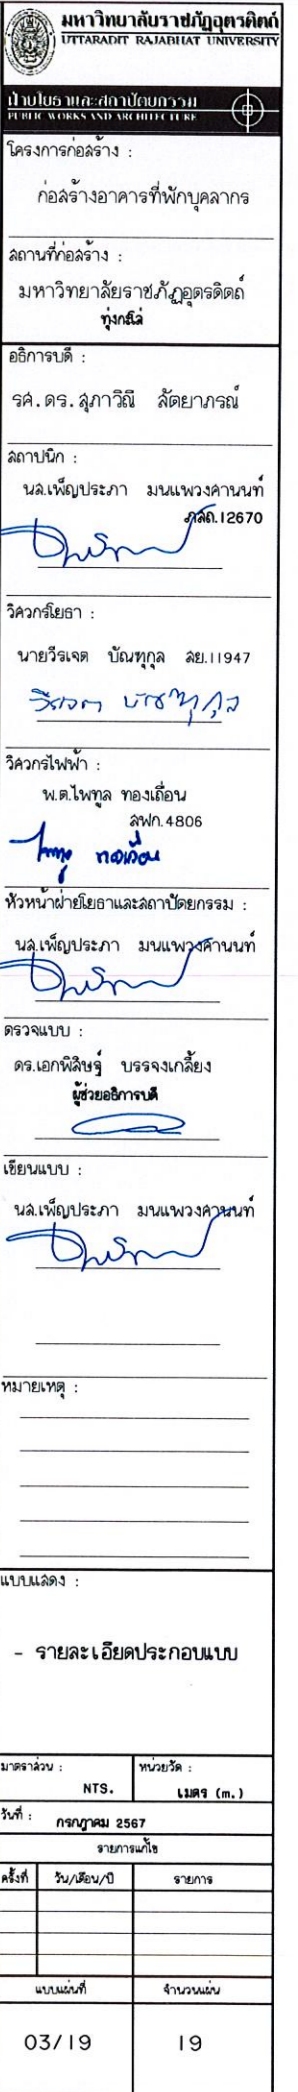 มหาวิทยาลัยราชภัฏอุตรดิตถ์
UTTARADIT RAJABHAT UNIVERSITY
ฝ่ายโยธาและสถาปัตยกรรม
PUBLIC WORKS AND ARCHITECTURE
โครงการก่อสร้าง :
ก่อสร้างอาคารที่พักบุคลากร
สถานที่ก่อสร้าง :
มหาวิทยาลัยราชภัฏอุตรดิตถ์
ทุ่งกะโล่
อธิการบดี :
รศ.ดร.สุภาวิณี สัตยาภรณ์
สถาปนิก :
นส.เพ็ญประภา มนแพวงคานนท์
ภสถ.12670
วิศวกรโยธา :
นายวีรเจต บัณฑุกุล สย.11947
วีรเจต บัณฑุกุล
วิศวกรไฟฟ้า :
พ.ต.ไพฑูล ทองเถื่อน
สฟก.4806
ไพฑูล ทองเถื่อน
หัวหน้าฝ่ายโยธาและสถาปัตยกรรม :
นส.เพ็ญประภา มนแพวงคานนท์
ตรวจแบบ :
ดร.เอกพิสิษฐ์ บรรจงเกลี้ยง
ผู้ช่วยอธิการบดี
เขียนแบบ :
นส.เพ็ญประภา มนแพวงคานนท์
หมายเหตุ :
แบบแสดง :
- รายละเอียดประกอบแบบ
มาตราส่วน : หน่วยวัด :
NTS. เมตร (m.)
วันที่ : กรกฎาคม 2567
รายการแก้ไข
ครั้งที่ วัน/เดือน/ปี รายการ
แบบแผ่นที่ จำนวนแผ่น
03/19 19